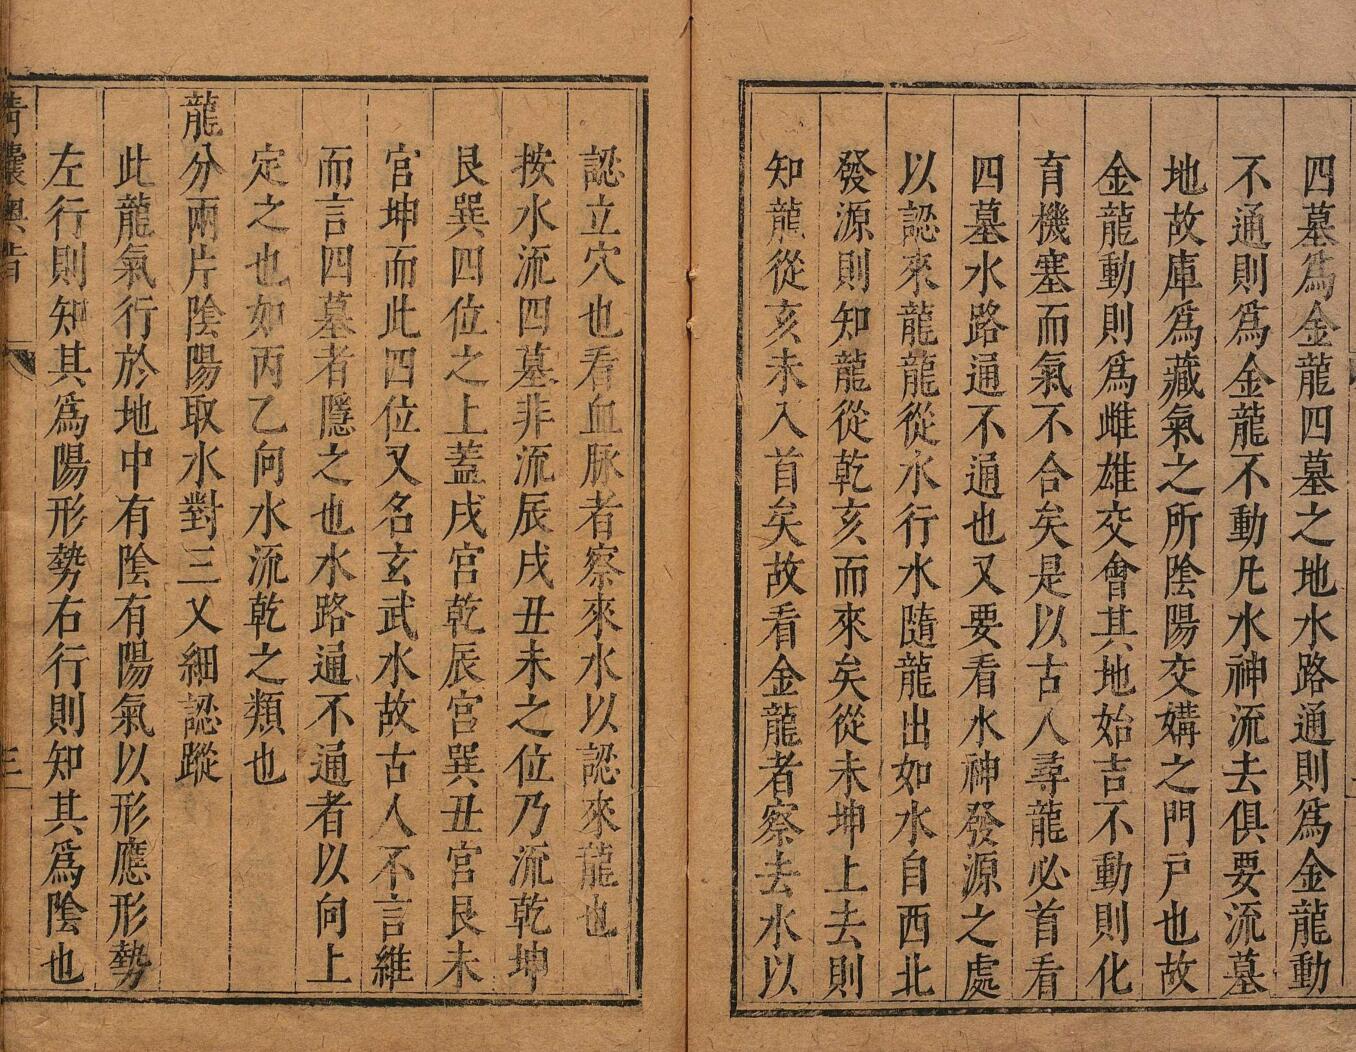 四墓爲金龍四墓之地水路通則爲金龍動
不通則爲金龍不動凡水神流去俱要流墓
地故庫爲藏氣之所陰陽交媾之門戶也故
金龍動則爲雌雄交會其地始吉不動則化
育機塞而氣不合矣是以古人尋龍必首看
四墓水路通不通也又要看水神發源之處
以認來龍龍從水行水隨龍出如水自西北
發源則知龍從乾亥而來矣從未坤上去則
知龍從亥未入首矣故看金龍者察去水以
認立穴也看血脉者察來水以認來龍也
按水流四墓非流辰戌丑未之位乃流乾坤
艮巽四位之上蓋戌宮乾辰宮巽丑宮艮未
官坤而此四位又名玄武水故古人不言維
而言四墓者隱之也水路通不通者以向上
定之也如丙乙向水流乾之類也
龍分兩片陰陽取水對三叉細認蹤
此龍氣行於地中有陰有陽氣以形應形勢
左行則知其爲陽形勢右行則知其爲陰也
青囊奧旨
三